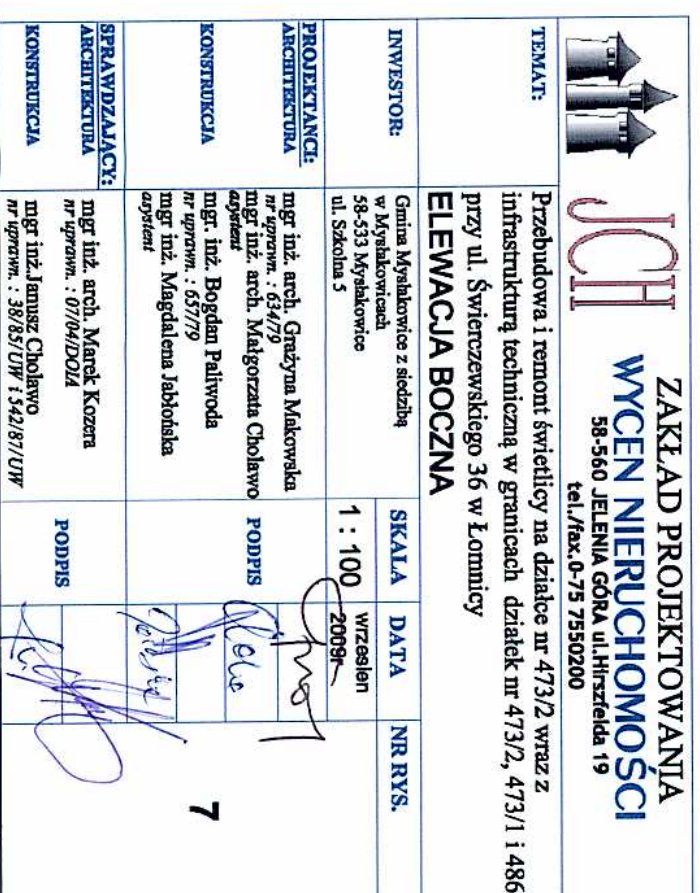 JCH
ZAKŁAD PROJEKTOWANIA
WYCEN NIERUCHOMOŚCI
58-560 JELENIA GÓRA ul.Hirszfelda 19
tel./fax.0-75 7550200
TEMAT:
Przebudowa i remont świetlicy na działce nr 473/2 wraz z
infrastrukturą techniczną w granicach działek nr 473/2, 473/1 i 486
przy ul. Świerczewskiego 36 w Łomnicy
ELEWACJA BOCZNA
INWESTOR:
Gmina Mysłakowice z siedzibą
w Mysłakowicach
58-533 Mysłakowice
ul. Szkolna 5
SKALA
1 : 100
DATA
wrzesien
2009r
NR RYS.
7
PROJEKTANCI:
ARCHITEKTURA
mgr inż. arch. Grażyna Makowska
nr uprawn. : 634/79
mgr inż. arch. Małgorzata Cholawo
asystent
KONSTRUKCJA
mgr. inż. Bogdan Paliwoda
nr uprawn. : 657/79
mgr inż. Magdalena Jabłońska
asystent
PODPIS
SPRAWDZAJĄCY:
ARCHITEKTURA
mgr inż. arch. Marek Kozera
nr uprawn. : 07/04/DOIA
KONSTRUKCJA
mgr inż.Janusz Cholawo
nr uprawn. : 38/85/UW i 542/87/UW
PODPIS